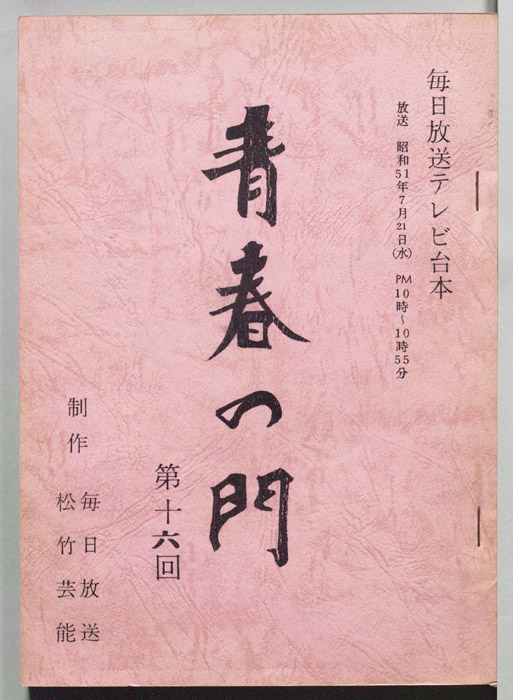 毎日放送テレビ台本
放送 昭和51年7月21日(水) PM10時~10時55分
青春の門
第十六回
制作
毎日放送
松竹芸能